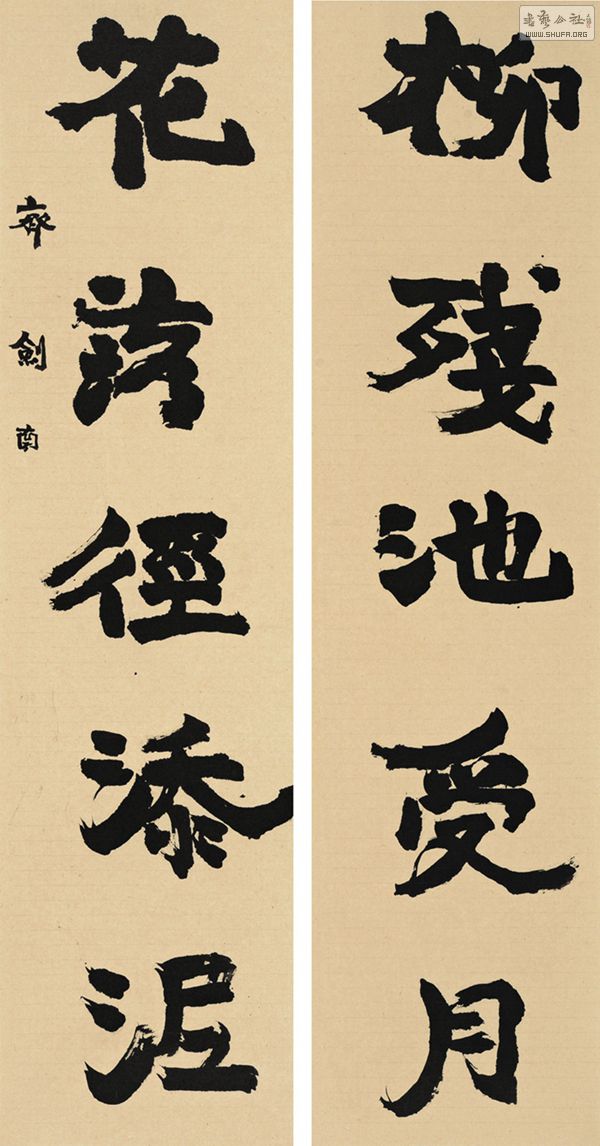 柳残池受月
花落径添泥
齊劍南
书艺公社
WWW.SHUFA.ORG